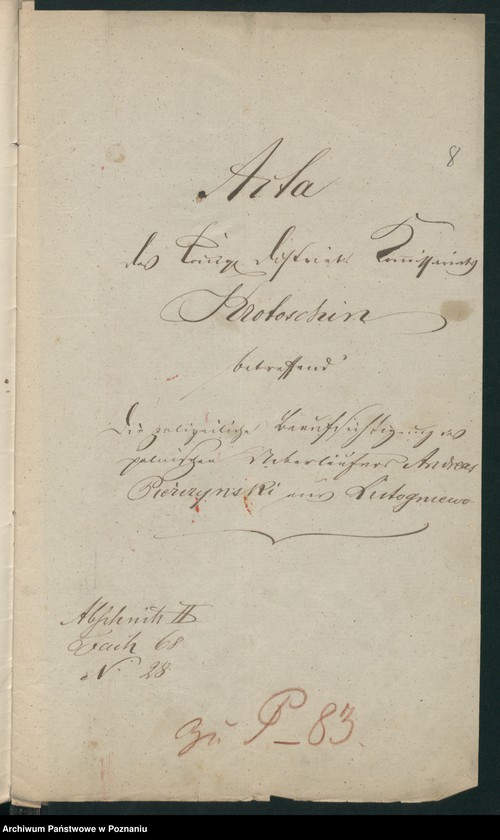 8
Acta
des Königl Districts Kommissariats
Krotoschin
betreffend
Die polizeiliche Beaufsichtigung des
polnischen Ueberläufers Andreas
Pierzynski aus Lutogniewo
Abschnitt II
Fach 68
N. 28
zu P-83.
Archiwum Państwowe w Poznaniu